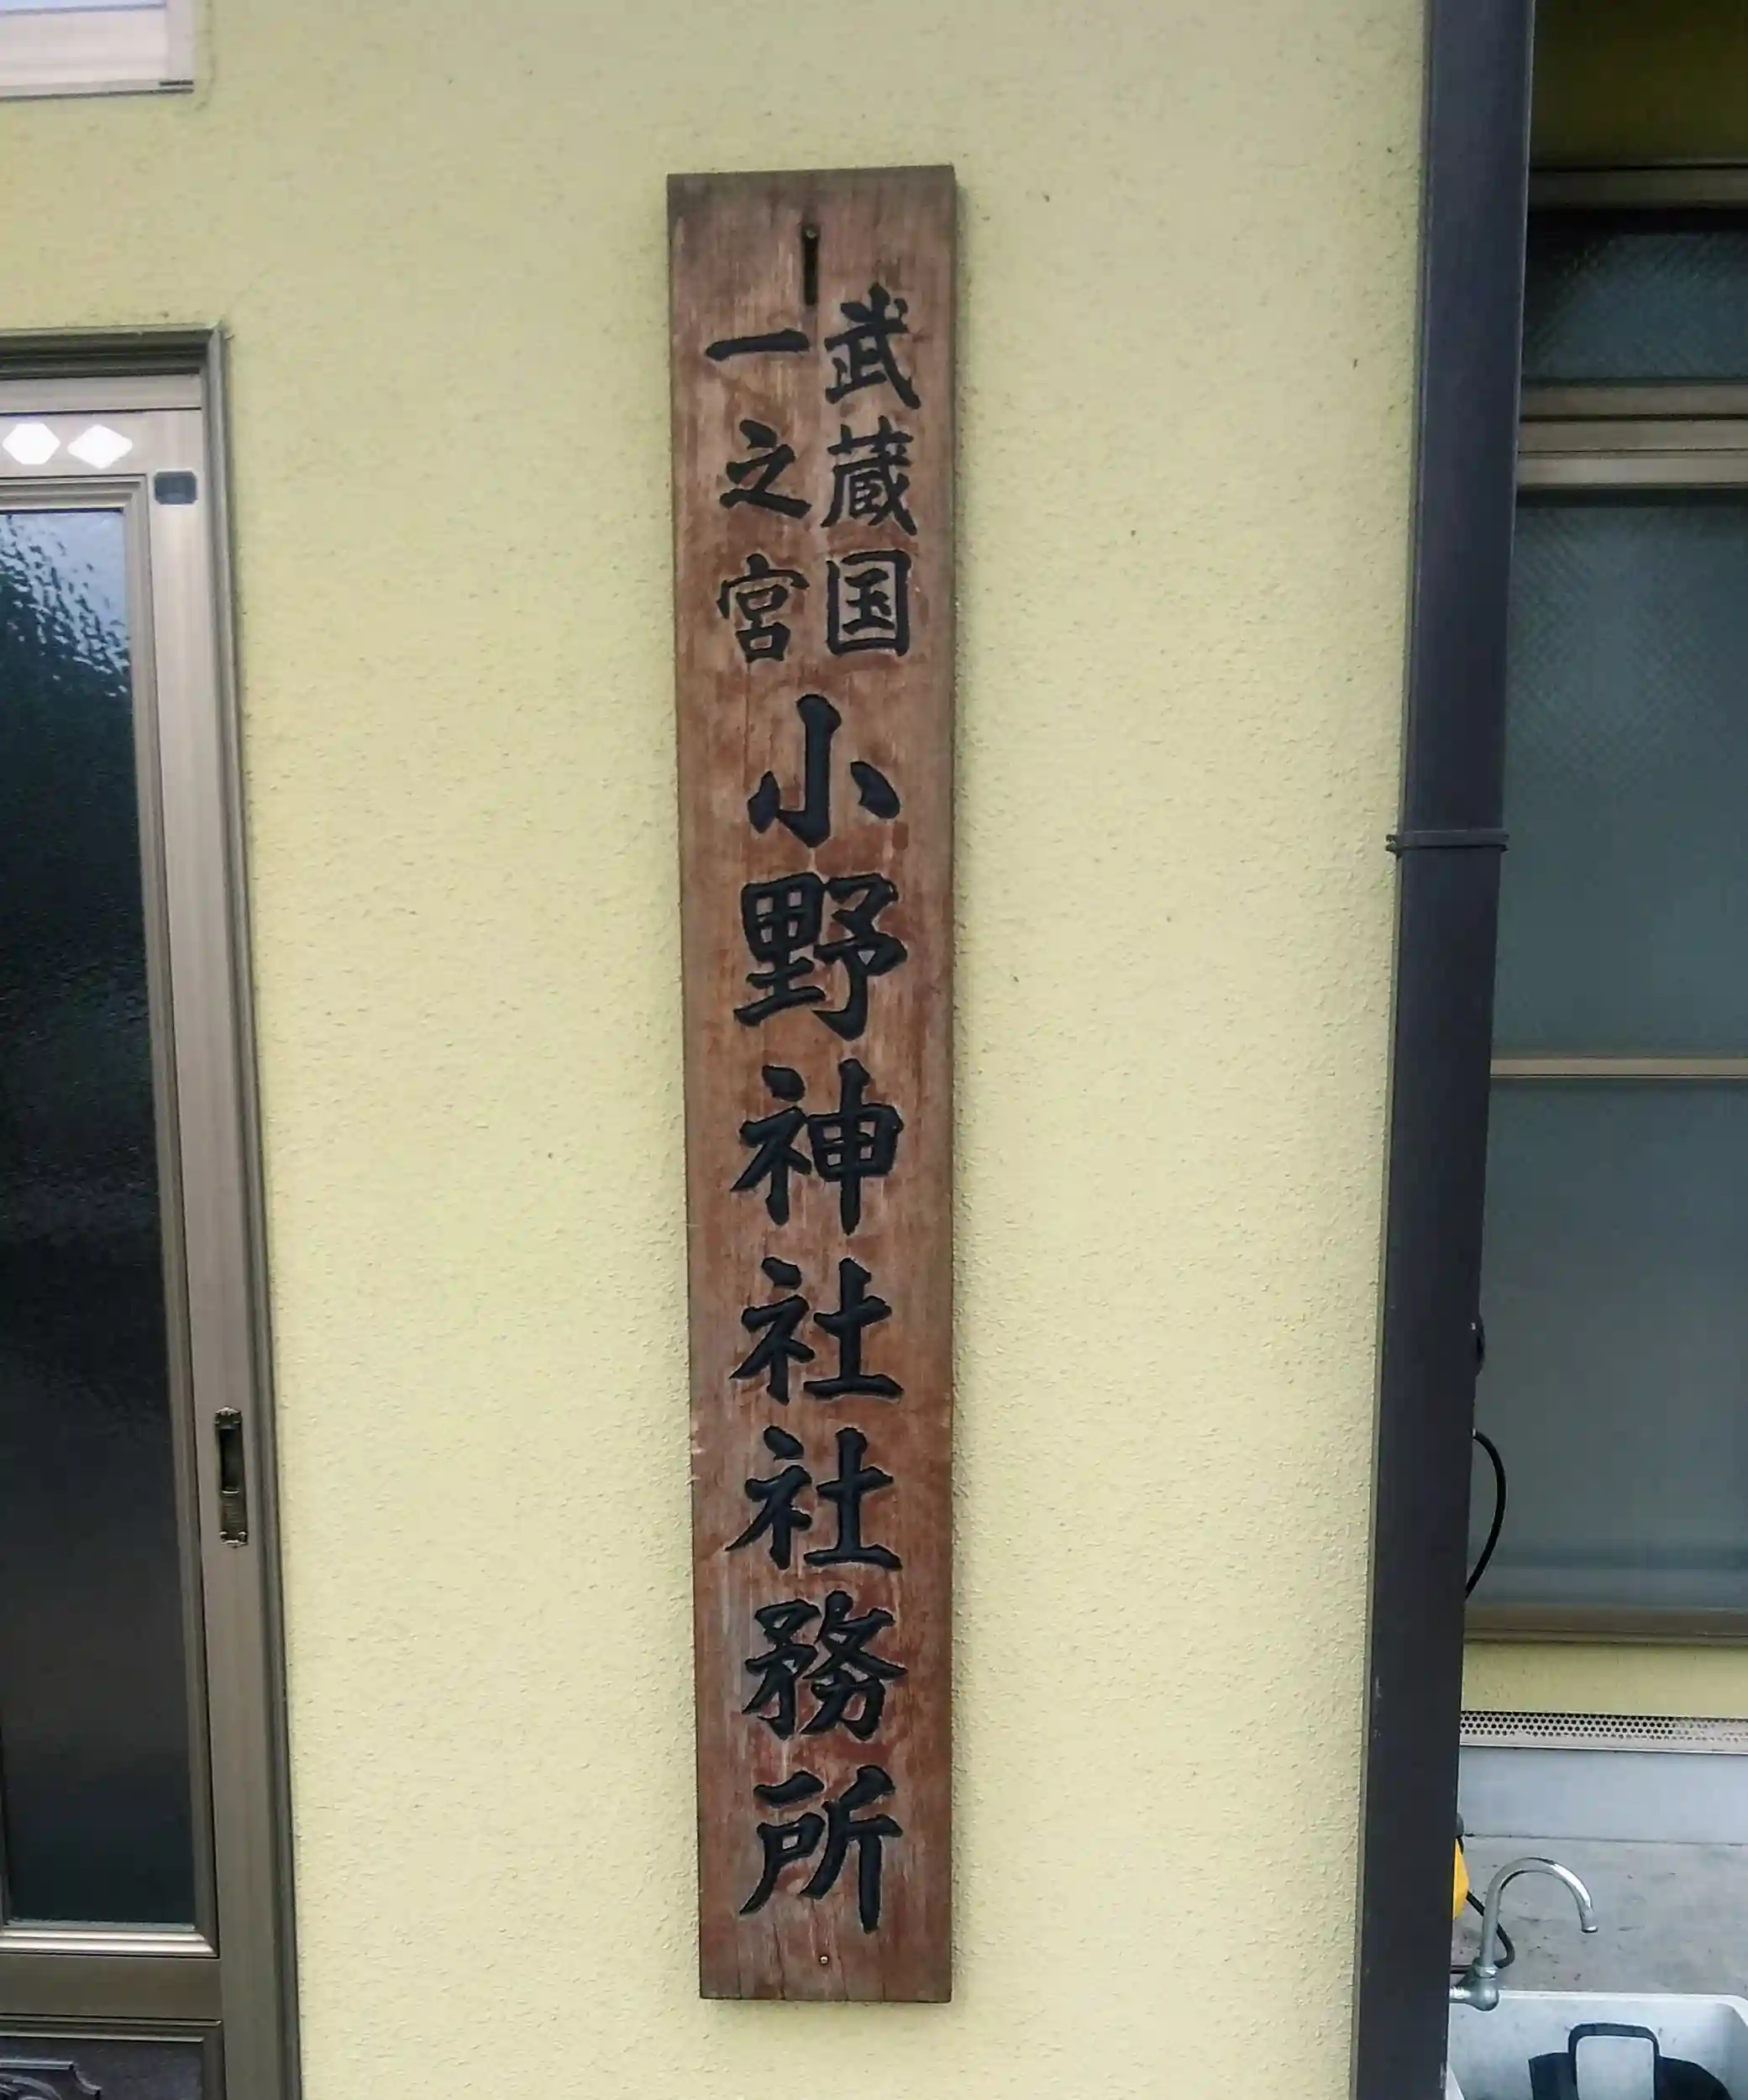 武蔵国
一之宮
小野神社社務所